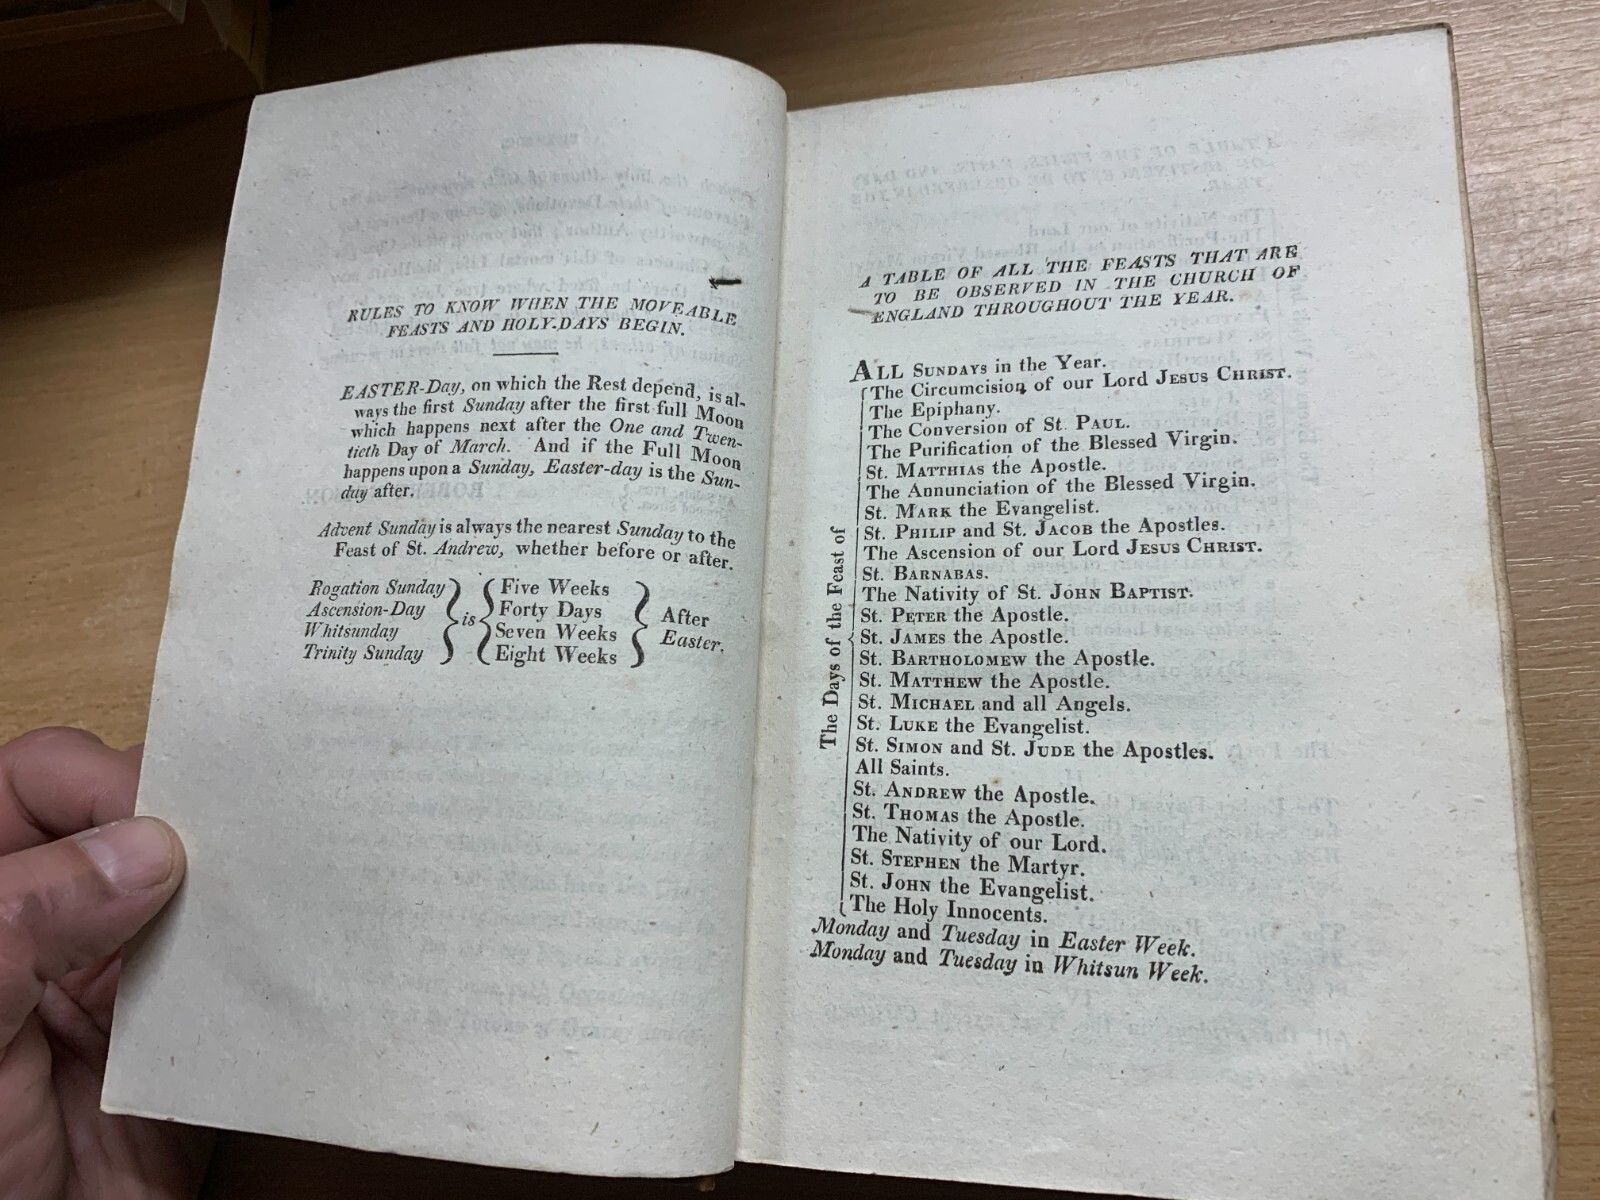 RULES TO KNOW WHEN THE MOVEABLE
FEASTS AND HOLY-DAYS BEGIN.
EASTER-Day, on which the Rest depend, is al-
ways the first Sunday after the first full Moon
which happens next after the One and Twen-
tieth Day of March. And if the Full Moon
happens upon a Sunday, Easter-day is the Sun-
day after.
Advent Sunday is always the nearest Sunday to the
Feast of St. Andrew, whether before or after.
Rogation Sunday
Ascension-Day
Whitsunday
Trinity Sunday
is
Five Weeks
Forty Days
Seven Weeks
Eight Weeks
After
Easter.
A TABLE OF ALL THE FEASTS THAT ARE
TO BE OBSERVED IN THE CHURCH OF
ENGLAND THROUGHOUT THE YEAR.
ALL SUNDAYS in the Year.
The Days of the Feast of
The Circumcision of our Lord JESUS CHRIST.
The Epiphany.
The Conversion of St. PAUL.
The Purification of the Blessed Virgin.
St. MATTHIAS the Apostle.
The Annunciation of the Blessed Virgin.
St. MARK the Evangelist.
St. PHILIP and St. JACOB the Apostles.
The Ascension of our Lord JESUS CHRIST.
St. BARNABAS.
The Nativity of St. JOHN BAPTIST.
St. PETER the Apostle.
St. JAMES the Apostle.
St. BARTHOLOMEW the Apostle.
St. MATTHEW the Apostle.
St. MICHAEL and all Angels.
St. LUKE the Evangelist.
St. SIMON and St. JUDE the Apostles.
All Saints.
St. ANDREW the Apostle.
St. THOMAS the Apostle.
The Nativity of our Lord.
St. STEPHEN the Martyr.
St. JOHN the Evangelist.
The Holy Innocents.
Monday and Tuesday in Easter Week.
Monday and Tuesday in Whitsun Week.